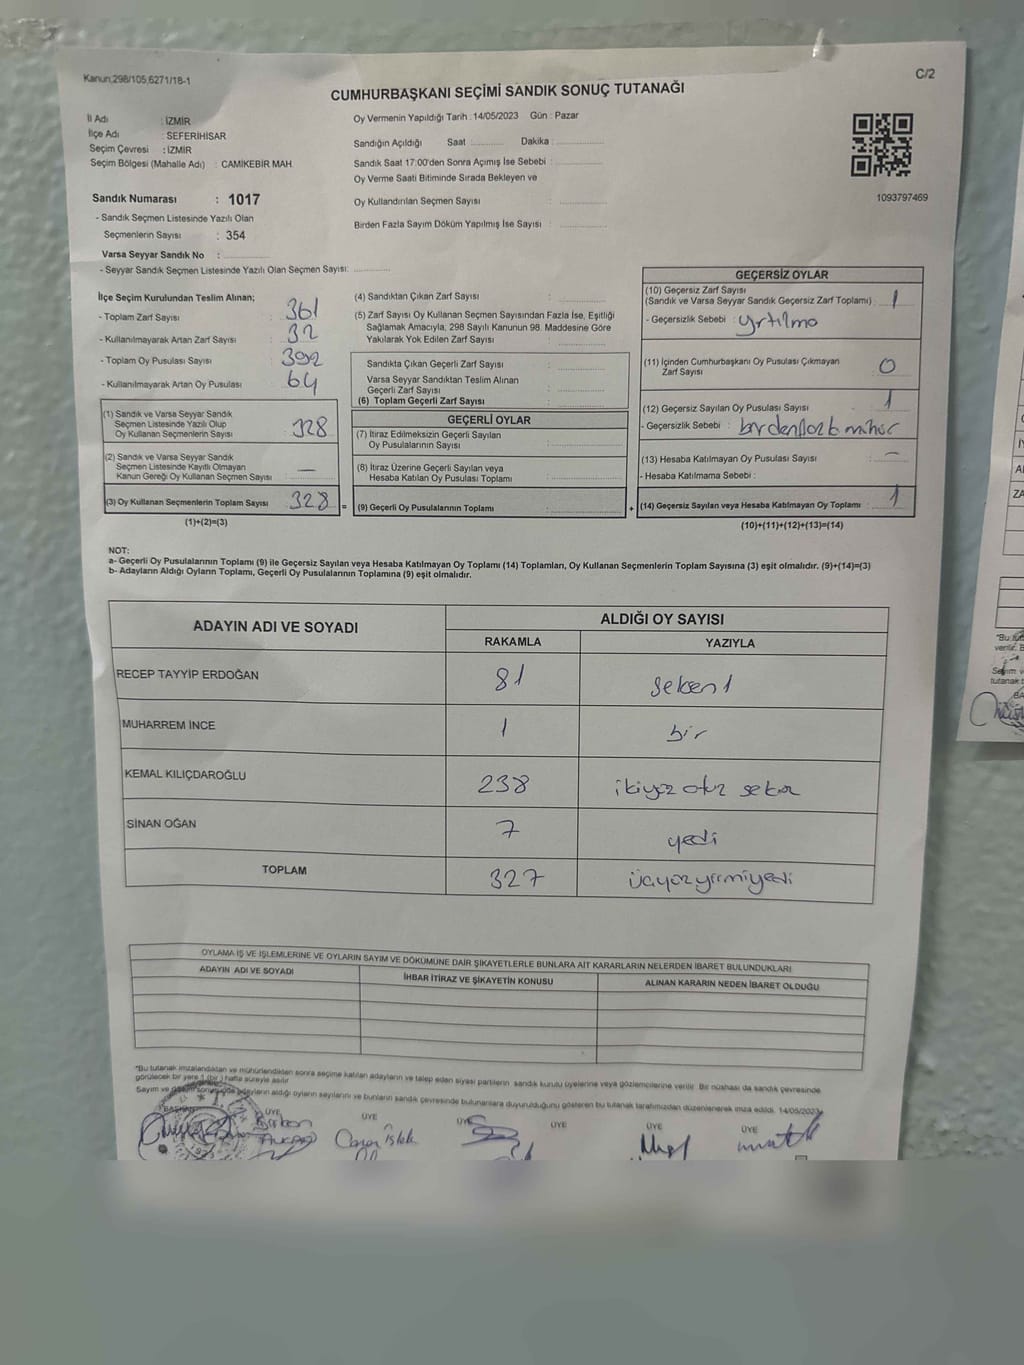 Kanun;298/105,6271/18-1
C/2
CUMHURBAŞKANI SEÇİMİ SANDIK SONUÇ TUTANAĞI
İl Adı : İZMİR
İlçe Adı : SEFERİHİSAR
Seçim Çevresi : İZMİR
Seçim Bölgesi (Mahalle Adı) : CAMİKEBİR MAH.
Sandık Numarası : 1017
- Sandık Seçmen Listesinde Yazılı Olan
Seçmenlerin Sayısı : 354
Varsa Seyyar Sandık No :
- Seyyar Sandık Seçmen Listesinde Yazılı Olan Seçmen Sayısı:
Oy Vermenin Yapıldığı Tarih : 14/05/2023 Gün : Pazar
Sandığın Açıldığı Saat Dakika :
Sandık Saat 17:00'den Sonra Açımış İse Sebebi :
Oy Verme Saati Bitiminde Sırada Bekleyen ve
Oy Kullandırılan Seçmen Sayısı :
Birden Fazla Sayım Döküm Yapılmış İse Sayısı :
1093797469
İlçe Seçim Kurulundan Teslim Alınan;
- Toplam Zarf Sayısı : 361
- Kullanılmayarak Artan Zarf Sayısı : 32
- Toplam Oy Pusulası Sayısı : 392
- Kullanılmayarak Artan Oy Pusulası : 64
(1) Sandık ve Varsa Seyyar Sandık
Seçmen Listesinde Yazılı Olup
Oy Kullanan Seçmenlerin Sayısı 328
(2) Sandık ve Varsa Seyyar Sandık
Seçmen Listesinde Kayıtlı Olmayan
Kanun Gereği Oy Kullanan Seçmen Sayısı —
(3) Oy Kullanan Seçmenlerin Toplam Sayısı 328 =
(1)+(2)=(3)
(4) Sandıktan Çıkan Zarf Sayısı :
(5) Zarf Sayısı Oy Kullanan Seçmen Sayısından Fazla İse, Eşitliği
Sağlamak Amacıyla, 298 Sayılı Kanunun 98. Maddesine Göre
Yakılarak Yok Edilen Zarf Sayısı :
Sandıkta Çıkan Geçerli Zarf Sayısı :
Varsa Seyyar Sandıktan Teslim Alınan
Geçerli Zarf Sayısı :
(6) Toplam Geçerli Zarf Sayısı :
GEÇERLİ OYLAR
(7) İtiraz Edilmeksizin Geçerli Sayılan
Oy Pusulalarının Sayısı :
(8) İtiraz Üzerine Geçerli Sayılan veya
Hesaba Katılan Oy Pusulası Toplamı :
(9) Geçerli Oy Pusulalarının Toplamı : +
GEÇERSİZ OYLAR
(10) Geçersiz Zarf Sayısı
(Sandık ve Varsa Seyyar Sandık Geçersiz Zarf Toplamı) : 1
- Geçersizlik Sebebi : yrtılma
(11) İçinden Cumhurbaşkanı Oy Pusulası Çıkmayan
Zarf Sayısı : 0
(12) Geçersiz Sayılan Oy Pusulası Sayısı : 1
- Geçersizlik Sebebi :
(13) Hesaba Katılmayan Oy Pusulası Sayısı : —
- Hesaba Katılmama Sebebi :
(14) Geçersiz Sayılan veya Hesaba Katılmayan Oy Toplamı : 1
(10)+(11)+(12)+(13)=(14)
NOT:
a- Geçerli Oy Pusulalarının Toplamı (9) ile Geçersiz Sayılan veya Hesaba Katılmayan Oy Toplamı (14) Toplamları, Oy Kullanan Seçmenlerin Toplam Sayısına (3) eşit olmalıdır. (9)+(14)=(3)
b- Adayların Aldığı Oyların Toplamı, Geçerli Oy Pusulalarının Toplamına (9) eşit olmalıdır.
ADAYIN ADI VE SOYADI ALDIĞI OY SAYISI
RAKAMLA YAZIYLA
RECEP TAYYİP ERDOĞAN 81 seksen1
MUHARREM İNCE 1 bir
KEMAL KILIÇDAROĞLU 238 ikiyüz otuz sekiz
SİNAN OĞAN 7 yedi
TOPLAM 327 üçyüzyirmiyedi
OYLAMA İŞ VE İŞLEMLERİNE VE OYLARIN SAYIM VE DÖKÜMÜNE DAİR ŞİKAYETLERLE BUNLARA AİT KARARLARIN NELERDEN İBARET BULUNDUKLARI
ADAYIN ADI VE SOYADI İHBAR İTİRAZ VE ŞİKAYETİN KONUSU ALINAN KARARIN NEDEN İBARET OLDUĞU
"Bu tutanak imzalandıktan ve mühürlendikten sonra seçime katılan adayların ve talep eden siyasi partilerin sandık kurulu üyelerine veya gözlemcilerine verilir. Bir nüshası da sandık çevresinde
görülecek bir yere 1 (bir ) hafta süreyle asılır
Sayım ve adayların aldığı oyların sayılarını ve bunların sandık çevresinde bulunanlara duyurulduğunu gösteren bu tutanak tarafımızdan düzenlenerek imza edildi. 14/05/2023
BAŞKAN ÜYE ÜYE ÜYE ÜYE ÜYE ÜYE